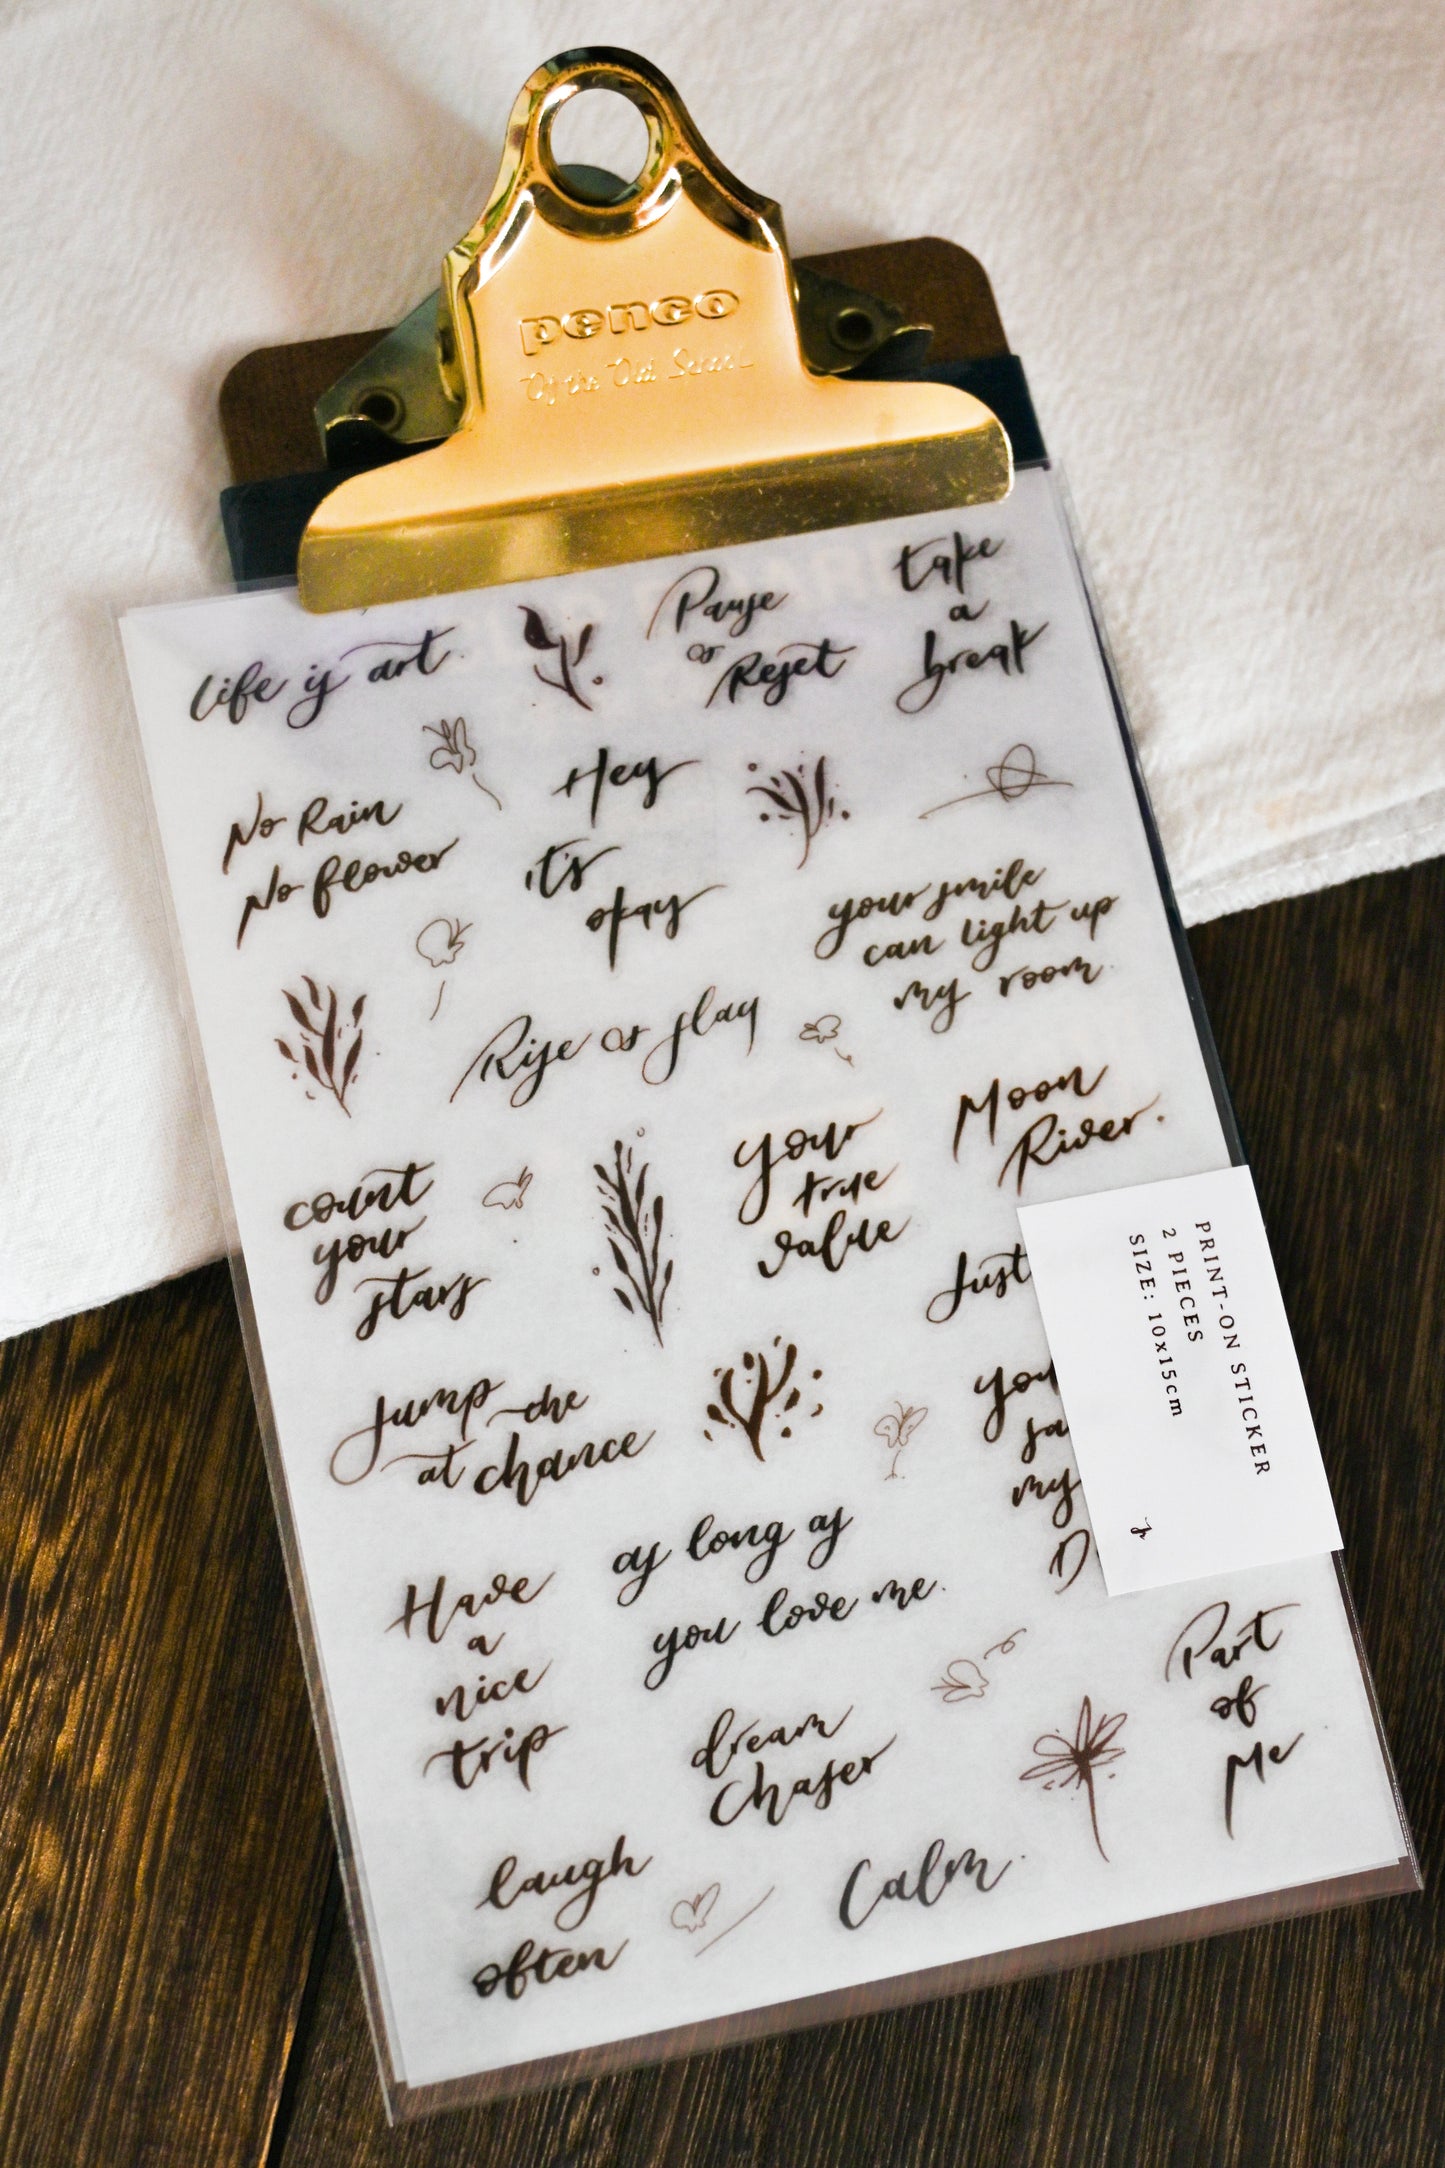 penco
Of the Old School
life is art.
Pause
or
Reset
take
a
break
No Rain
No flower
Hey
it's
okay
your smile
can light up
my room.
Rise or slay
count
your
stars
your
true
value
Moon
River.
Just
jump the
at chance
you
sa
my
D
as long as
you love me.
Have
a
nice
trip
dream
Chaser
Part
of
Me
laugh
often
Calm.
PRINT-ON STICKER
2 PIECES
SIZE: 10x15cm